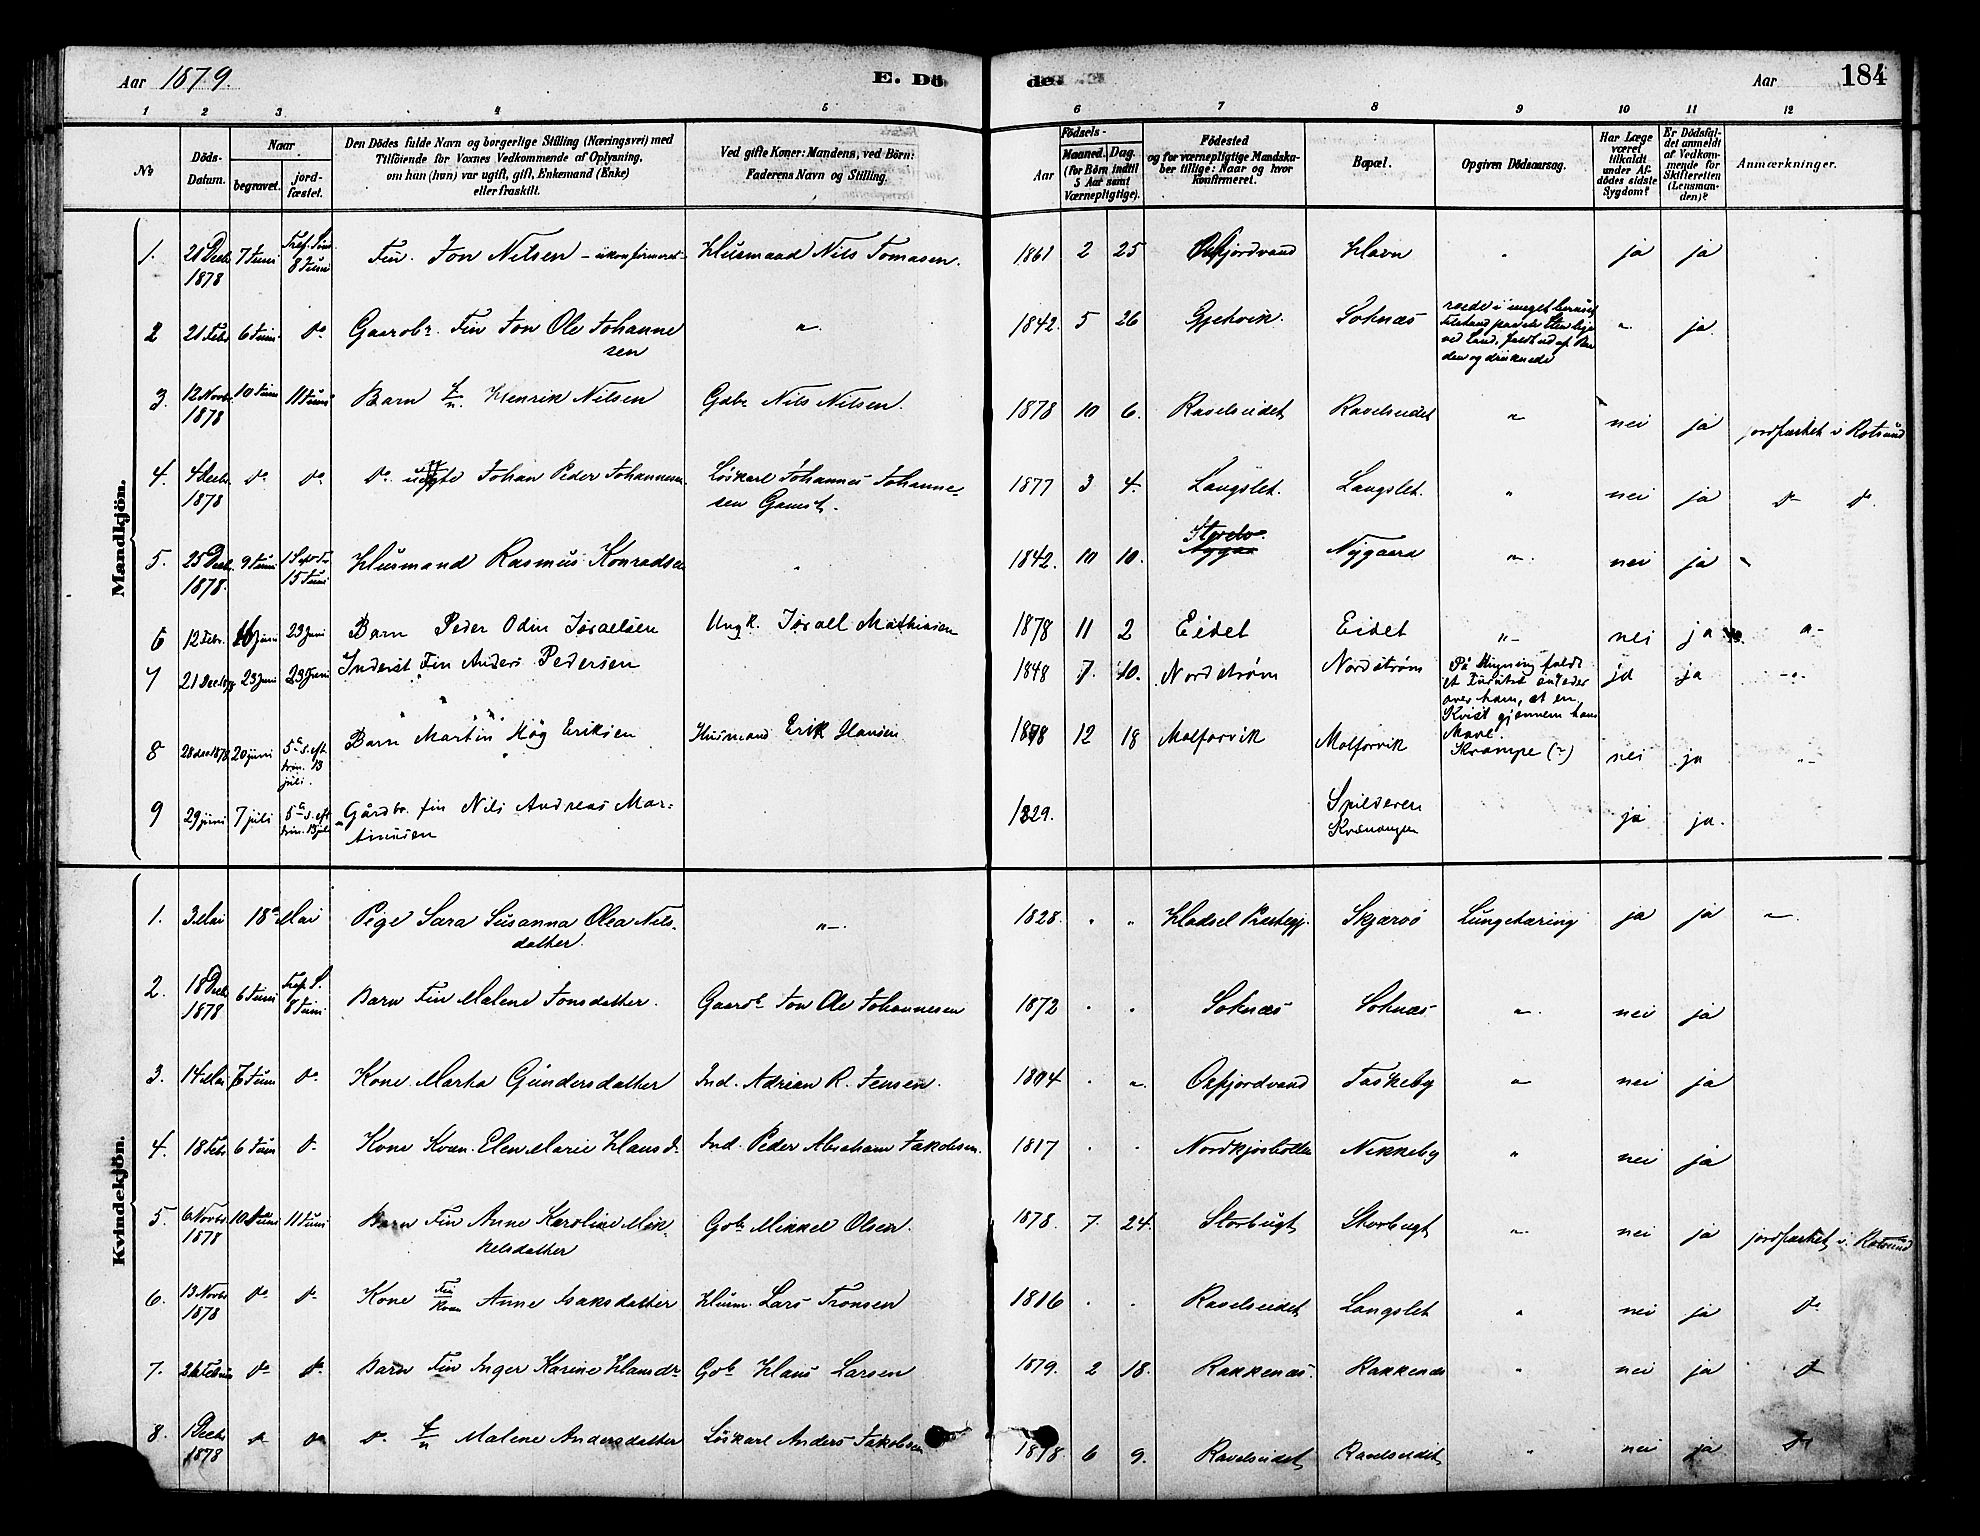 Aar 1879.
E. Dö
de.
Aar
184
1 2 3 4 5 6 7 8 9 10 11 12
No
Döds-
Datum.
Naar
begravet.
jord-
fæstet.
Den Dödes fulde Navn og borgerlige Stilling (Næringsvei) med
Tilföiende for Voxnes Vedkommende af Oplysning,
om han (hun) var ugift, gift, Enkemand (Enke)
eller fraskilt.
Ved gifte Koner: Mandens, ved Börn:
Faderens Navn og Stilling.
Födsels-
Aar
Maaned.
Dag.
(for Börn indtil
5 Aar samt
Værnepligtige).
Födested
og for værnepligtige Mandska-
ber tillige: Naar og hvor
konfirmeret.
Bopæl.
Opgiven Dödsaarsag.
Har Læge
været
tilkaldt
under Af-
dödes sidste
Sygdom?
Er Dödsfal-
det anmeldt
af Vedkom-
mende for
Skifteretten
(Lensman-
den)?
Anmærkninger.
Mandkjön.
1. 21 Decb. 1878 7 Juni 8 Juni Fin. Jon Nilsen - ukonfirmeret - Husmand Nils Tomasen. 1861 2 25 Oxfjordvand Havn " ja ja
2 21 Febr 6 Juni do Gaardbr. Fin Jon Ole Johanne
sen " 1842. 5 26 Gjetvik. Soknæs
ved Land, faldt ud af Baa
den og druknede " ja.
3. 12 Novbr. 1878 10 Juni 11 Juni Barn Henrik Nilsen Gdbr Nils Nilsen. 1878 10 6. Ravelseidet Ravelseidet " nei ja jordfæstet i Rotsund
4. 4 Decbr. 1878 do do do uægte Johan Peder Johannesen Löskarl Johannes Johanne-
sen 1877 3 4. Langslet. Langslet. " nei ja do do
5. 25 Decb. 1878. 9 Juni 15 Juni Husmand Rasmus Konradsen " 1842. 10 10. Nygaard " nei ja "
6 12 Febr. 16 Juni 29 Juni Barn Peder Odin Israelsen Ungk. Israel Mathiasen 1878 11 2 Eidet Eidet " nei ja "
7 21 Dec. 29 Juni 29 Juni Inderst Fin Anders Pedersen 1848 7. 10. Nordstrøm Nordstrøm På Hugning faldt
et
over ham, at en
Kvist gjennem hans
Mave. ja ja "
8 28 dec 1878 20 juni 5te s. eft
trin. 13
juli. Barn Martin Høg Eriksen Husmand Erik Hansen 1878 12 18 Molforvik Molforvik Krampe (?) nei ja "
9 29 juni 7 juli 5te s. eft
trin. 13 juli Gårdbr. fin Nils Andreas Mar-
tinusen 1829. Spilderen
Kvænangen ja ja.
Kvindekjön.
1. 3 Mai 18de Mai Pige Sara Susanna Olea Nils-
datter. " 1828. " " Hadsel Præstegj. Skjærvö Lungetæring ja ja "
2. 18 Decb. 1878 6 Juni 8 Juni Barn Fin Malene Jonsdatter. Gaardbr Jon Ole Johannesen 1872 " " Soknæs Soknæs " nei ja
3. 14 Mai 7 Juni do Kone Marta Gundersdatter Ind. Adrian R. Jensen. 1804 " " Oxfjordvand Taskeby " nei ja
4. 18 Febr 6 Juni do Kone Kvæn. Elen Marie Hansd. Ind. Peder Abraham Jakobsen. 1817 " " Nordkjosbotten Nikkeby " nei ja
5. 6 Novbr. 1878 10 Juni 11 Juni Barn Fin Anne Karoline Mik-
kelsdatter Gbr Mikkel Olsen. 1878. 7. 24. Storbugt Storbugt " nei ja jordfæstet i Rotsund
6. 13 Novbr 1878 do do Kone Fin
Kvæn Anne Isaksdatter Husm. Lars Tronsen 1816 " " Ravelseidet Langslet " nei ja do
7. 26 Februar do do Barn Fin Inger Karine Hansdr Gbr Hans Larsen 1879. 2 18. Rakkenæs. Rakkenæs " nei ja do
8. 1 Decbr 1878 do do do Malene Andersdatter Löskarl Anders Jakobsen 1878. 6 9. Ravelseidet Ravelseidet " nei ja do